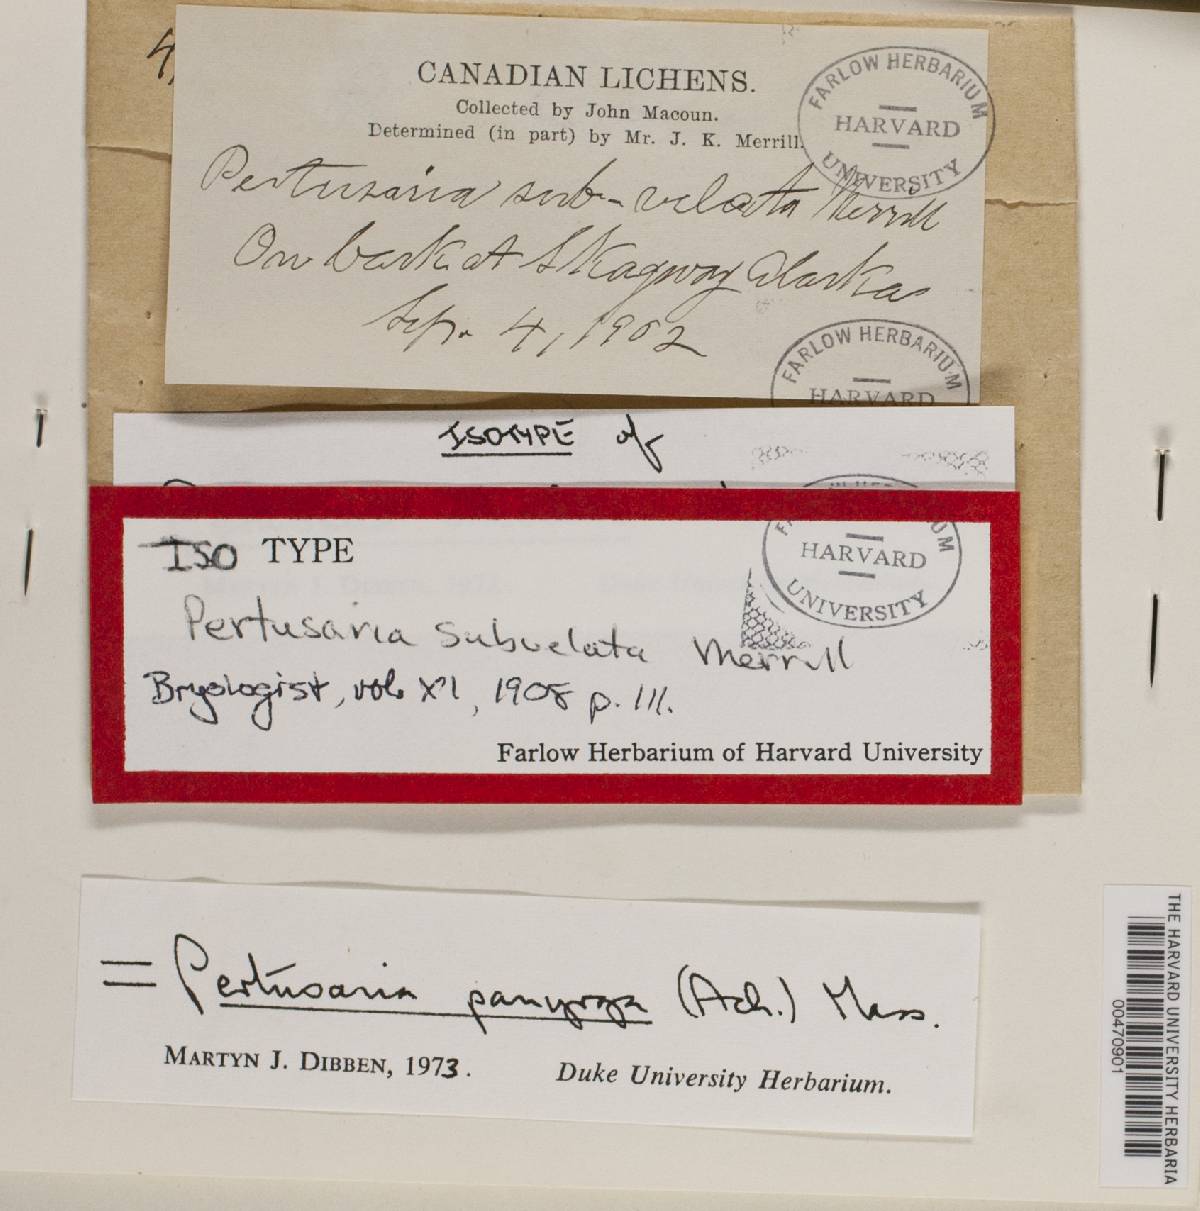 4
CANADIAN LICHENS.
Collected by John Macoun.
Determined (in part) by Mr. J. K. Merrill.
Pertusaria sub-velata Merrill
On bark at Skagway Alaska
Sep. 4, 1902
FARLOW HERBARIUM
HARVARD
UNIVERSITY
FARLOW HERBARIUM
HARVARD
ISOTYPE of
ISO TYPE
HARVARD
UNIVERSITY
Pertusaria subvelata Merrill
Bryologist, vol. XI, 1908 p. 111.
Farlow Herbarium of Harvard University
= Pertusaria panyrga (Ach.) Mass.
MARTYN J. DIBBEN, 1973.
Duke University Herbarium.
THE HARVARD UNIVERSITY HERBARIA
00470901